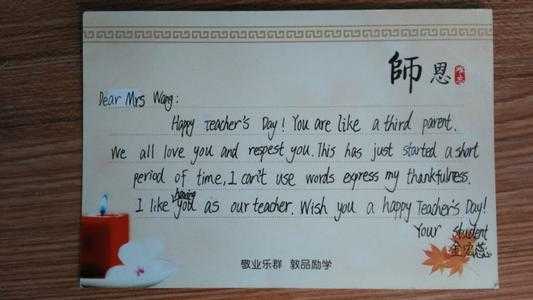 師恩
Dear Mrs Wang:
Happy Teacher's Day! You are like a third parent.
We all love you and respest you. This has just started a short
period of time, I can't use words express my thankfulness.
I like having you as our teacher. Wish you a happy Teacher's Day!
Your student
敬业乐群 敦品励学